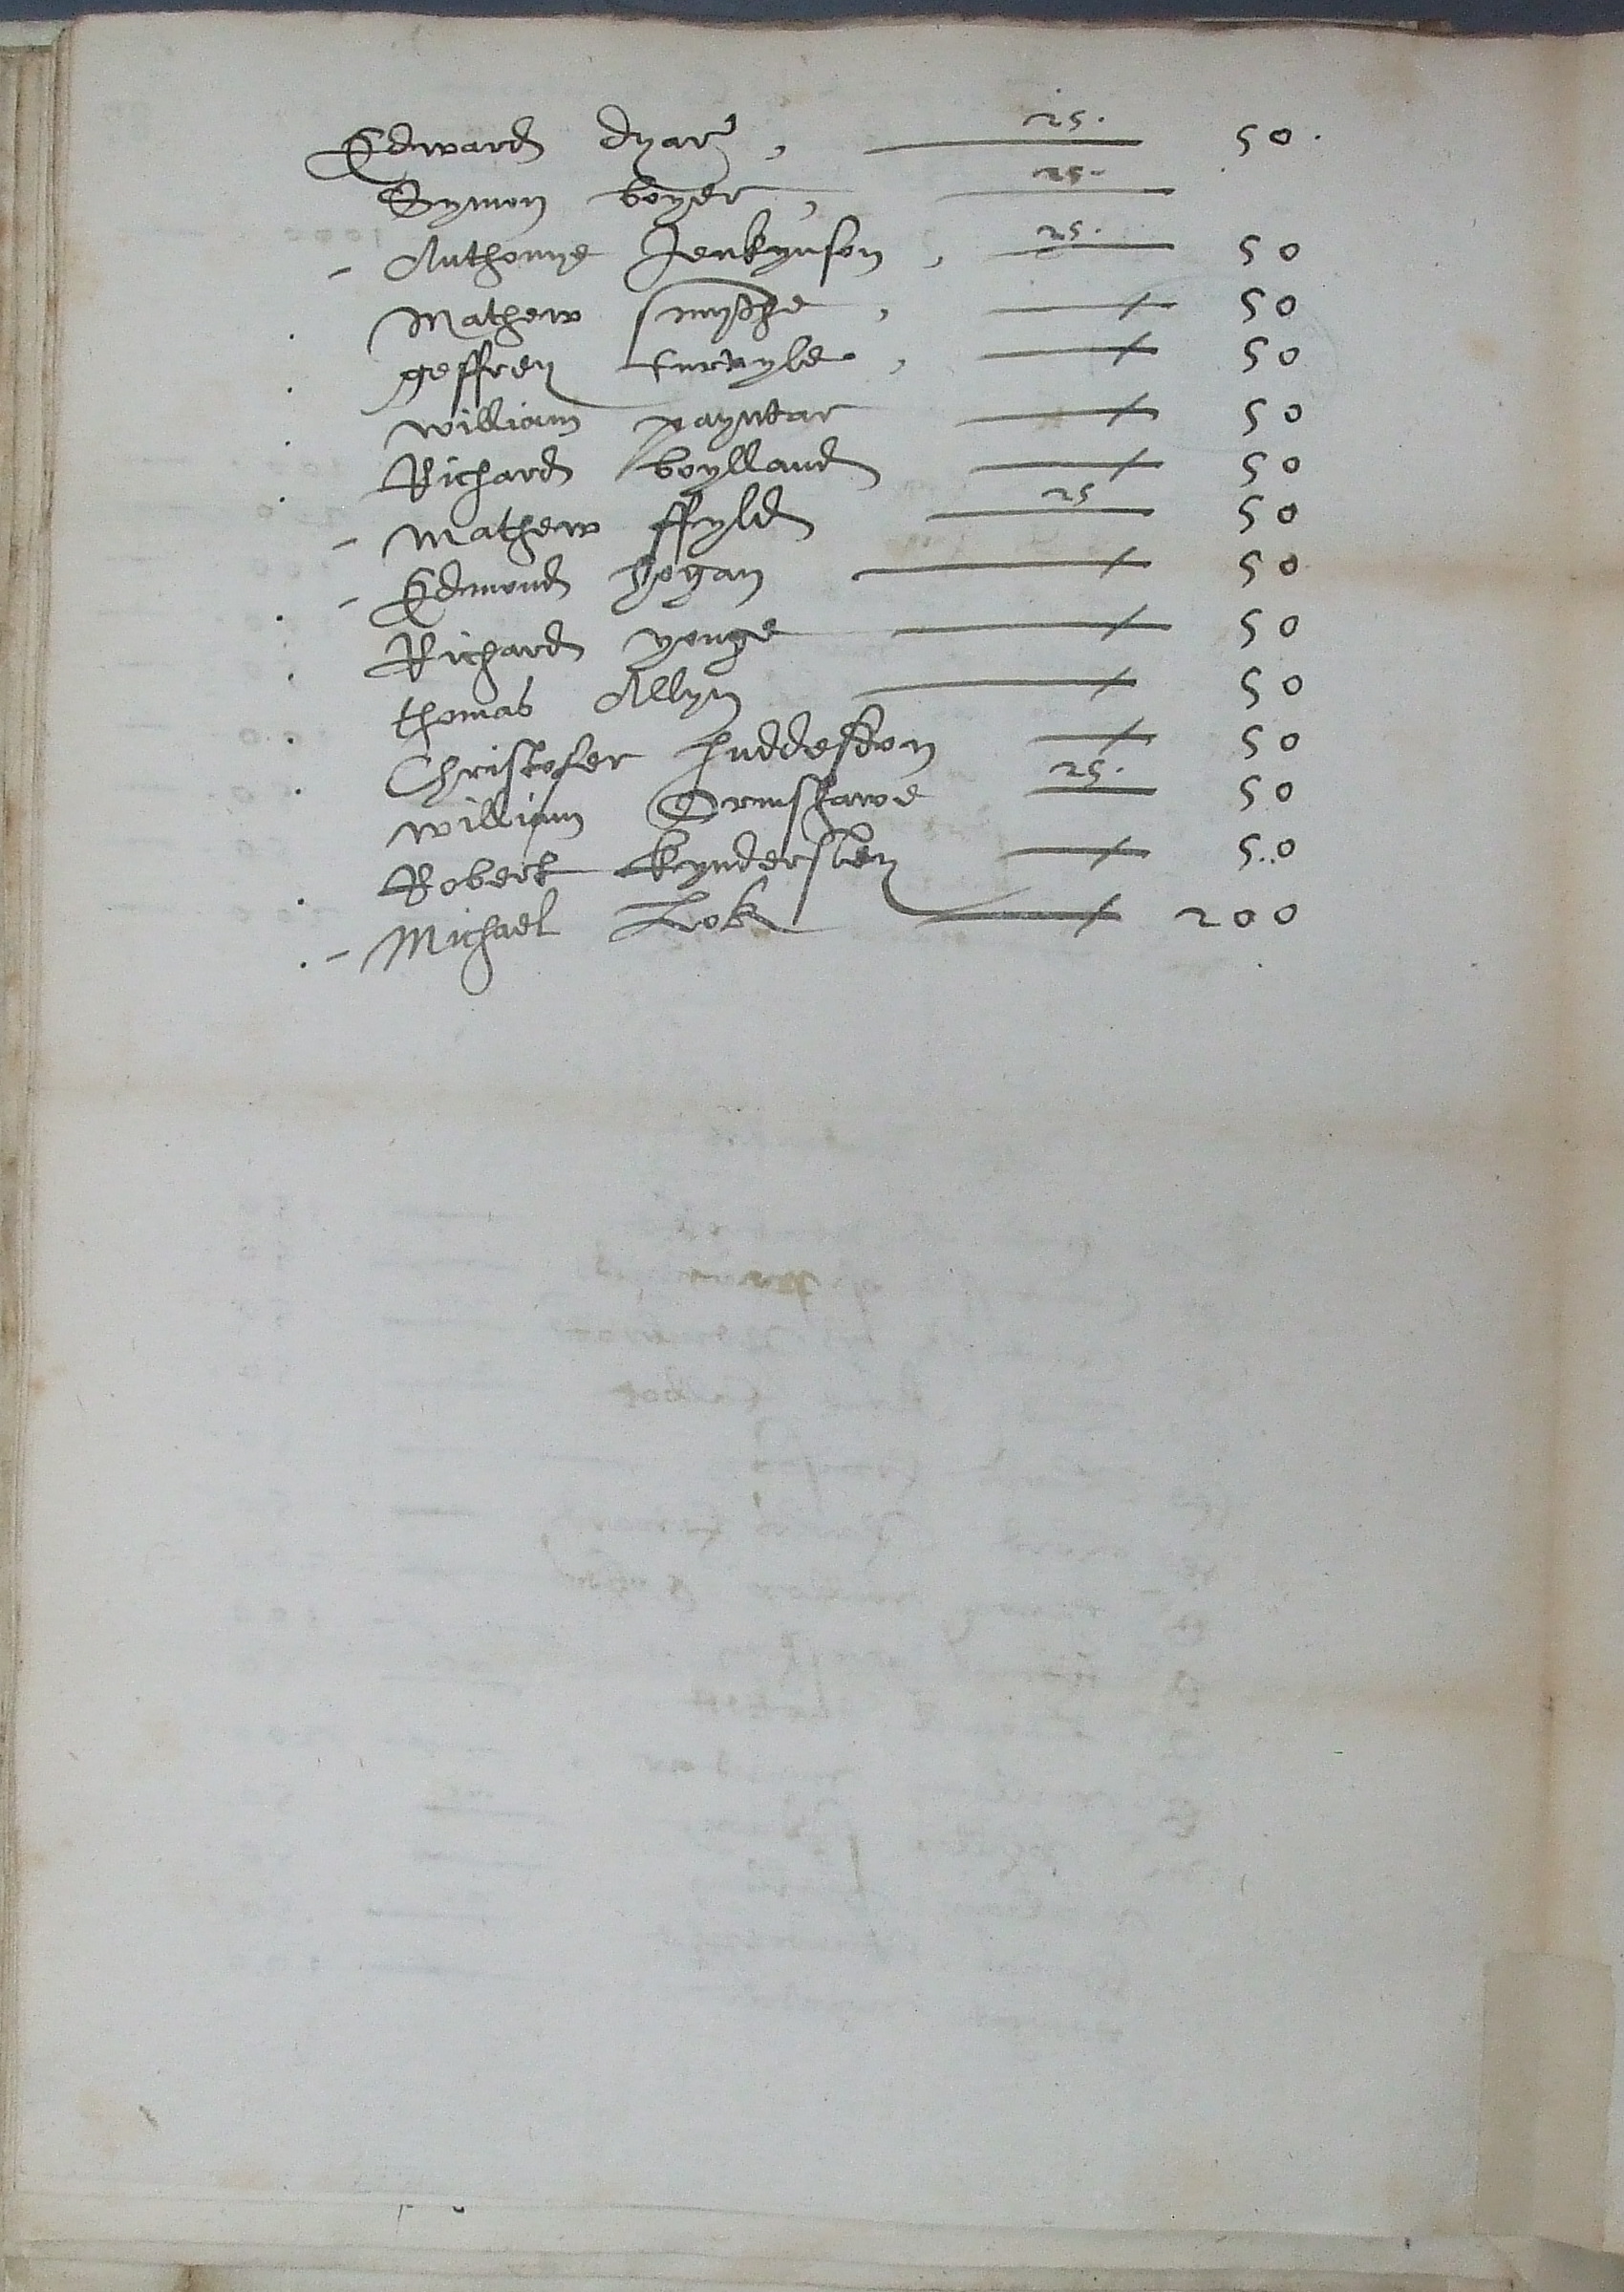 Edward dyar , 25. 50.
Symon boyer , 25.
- Anthonye Jenkynson , 25. 50
. Mathew smythe , 50
. geffrey turvyle , 50
. william payntar 50
. Richard boylland 50
- Mathew ffyld 25 50
. - Edmond hogan 50
. Richard yonge 50
. thomas Allyn 50
. Christofer huddeston 50
william Ormshawe 25. 50
. Robert kyndersley 50
. - Michael Lok 200